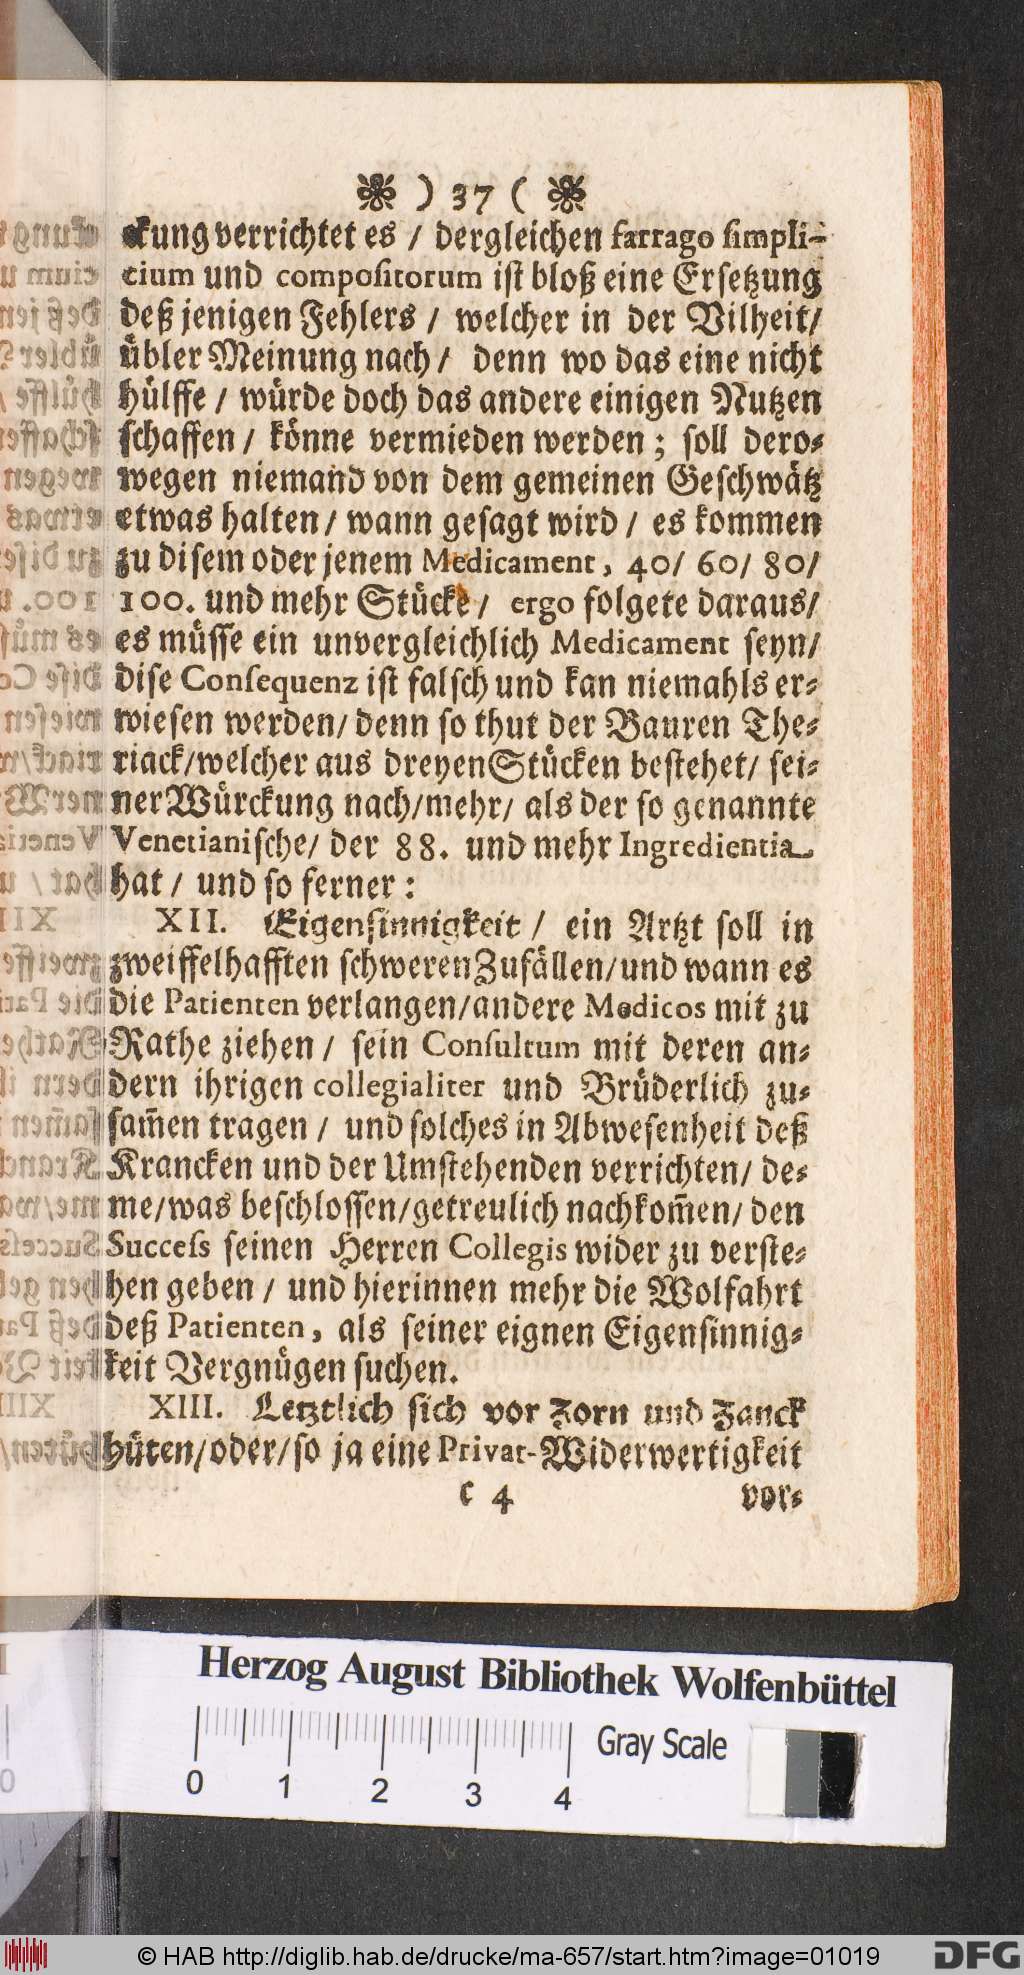 ) 37 (
ckung verrichtet es / dergleichen farrago simpli-
cium und compositorum ist bloß eine Ersetzung
deß jenigen Fehlers / welcher in der Vilheit/
übler Meinung nach / denn wo das eine nicht
hülffe / würde doch das andere einigen Nutzen
schaffen / könne vermieden werden ; soll dero-
wegen niemand von dem gemeinen Geschwätz
etwas halten / wann gesagt wird / es kommen
zu disem oder jenem Medicament, 40/ 60/ 80/
100. und mehr Stücke / ergo folgete daraus/
es müsse ein unvergleichlich Medicament seyn/
dise Consequenz ist falsch und kan niemahls er-
wiesen werden/ denn so thut der Bauren The-
riack/welcher aus dreyen Stücken bestehet/ sei-
ner Würckung nach/mehr/ als der so genannte
Venetianische/ der 88. und mehr Ingredientia
hat / und so ferner :
XII. Eigensinnigkeit / ein Artzt soll in
zweiffelhafften schweren Zufällen/und wann es
die Patienten verlangen/andere Medicos mit zu
Rathe ziehen / sein Consultum mit deren an-
dern ihrigen collegialiter und Brüderlich zu-
sam̃en tragen / und solches in Abwesenheit deß
Krancken und der Umstehenden verrichten/ de-
me/was beschlossen/getreulich nachkom̃en/ den
Success seinen Herren Collegis wider zu verste-
hen geben / und hierinnen mehr die Wolfahrt
deß Patienten, als seiner eignen Eigensinnig-
keit Vergnügen suchen.
XIII. Letztlich sich vor Zorn und Zanck
hüten/oder/so ja eine Privat-Widerwertigkeit
c 4 vor-
Herzog August Bibliothek Wolfenbüttel
0 1 2 3 4 Gray Scale
© HAB http://diglib.hab.de/drucke/ma-657/start.htm?image=01019 DFG